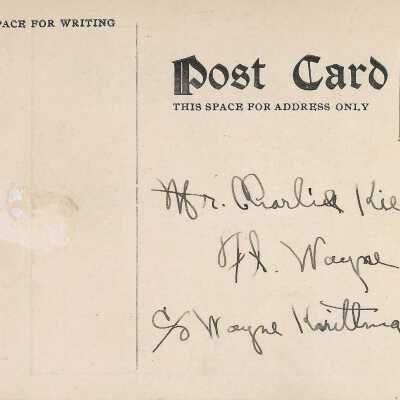 PACE FOR WRITING
Post Card
THIS SPACE FOR ADDRESS ONLY
Mr. Charlie Kie
Ft. Wayne
c/o Wayne Knittma